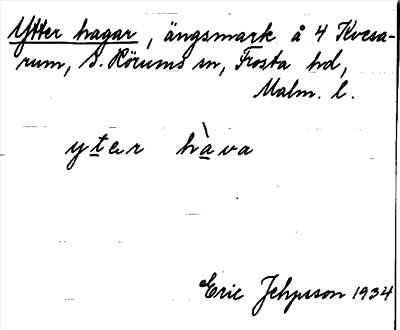 Ytter hagar, ängsmark å 4 Kvesa-
rum, S. Hörums sn, Frosta hd,
Malm. l.
yter hàva
Eric Jehpsson 1934